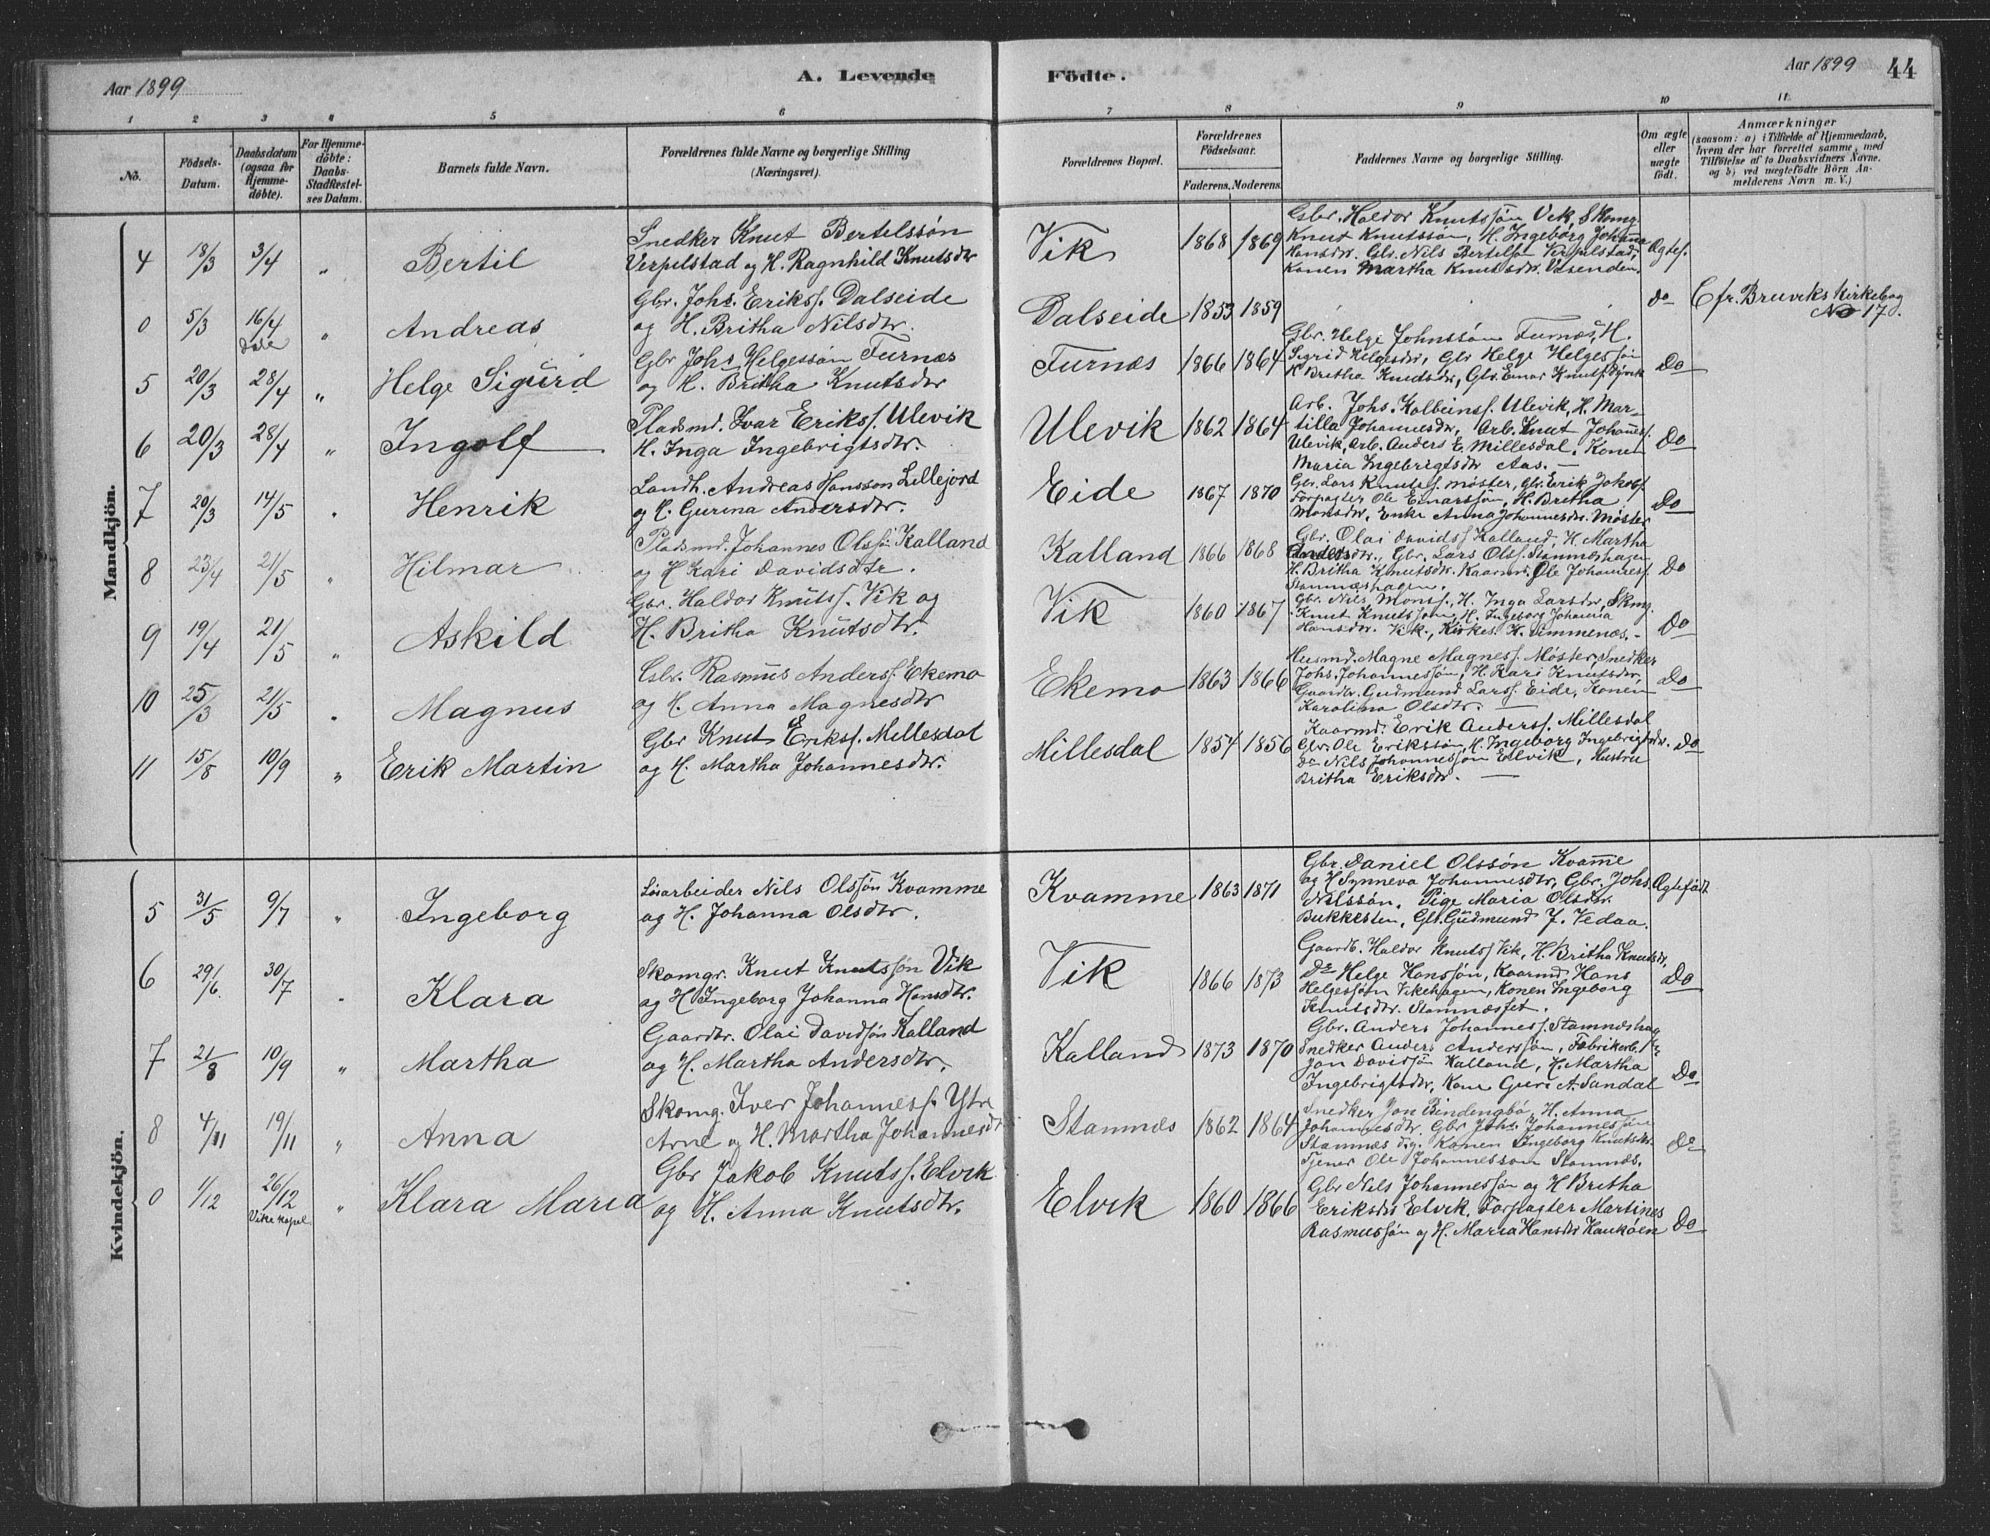 Aar 1899
A. Levende
Födte.
Aar 1899
44
1 2 3 4 5 6 7 8 9 10 11
No.
Födsels-Datum.
Daabsdatum (ogsaa for Hjemmedöbte).
For Hjemmedöbte: Daabs-Stadfæstelses Datum.
Barnets fulde Navn.
Forældrenes fulde Navne og borgerlige Stilling
(Næringsvei).
Forældrenes Bopæl.
Forældrenes Födselsaar.
Faderens. Moderens.
Faddernes Navne og borgerlige Stilling.
Om ægte eller uægte födt.
Anmærkninger
(saasom: a) i Tilfælde af Hjemmedaab,
hvem der har forrettet samme, med
Tilföielse af to Daabsvidners Navne.
og b) ved uægtefödte Börn An-
melderens Navn m. V.)
Mandkjön.
4 18/3 3/4 " Bertil
Snedker Knut Bertelssön
Verpelstad og H. Ragnhild Knutsdtr
Vik 1868 1869
Gbr. Haldor Knutssön Vik, Skomg.
Knut Knutssön, H. Ingeborg Johanna
Hansdtr. Gbr. Nils Bertelss. Verpelstad,
Konen Martha Knutsdtr. Vasenden.
Ægtef.
0 5/3 16/4 Dale " Andreas
Gbr. Johs. Erikss. Dalseide
og H. Britha Nilsdtr.
Dalseide 1853 1859
do
Cfr. Bruviks Kirkebog
No 17.
5 20/3 28/4 " Helge Sigurd
Gbr Johs Helgessön Furnæs
og H. Britha Knutsdtr
Furnæs 1866 1864
Gbr. Helge Johnssön Furnæs, H.
Sigrid Helgesdtr, Gbr Helge Helgessön
H Britha Knutsdtr, Gbr. Einar Knuts.
Do
6 20/3 28/4 " Ingolf
Pladsmd. Ivar Erikss. Ulevik
H. Inga Ingebrigtsdtr.
Ulevik 1862 1864
Arb. Johs. Kolbeinss. Ulevik, H. Mar-
tilla Johannesdtr, Arb. Knut Johanness.
Ulevik, Arb. Anders E. Millesdal, Konen
Maria Ingebrigtsdtr Aas. —
Do
7 20/3 14/5 " Henrik
Landh. Andreas Hansson Lillejord
og H. Gurina Andersdtr.
Eide 1867 1870
Gbr. Lars Knutss. Möster, Gbr. Erik
Forpagter Ole Einarssön, H. Britha
Monsdtr, Enke Anna Johannesdtr. Möster
Do
8 23/4 21/5 " Hilmar
Pladsmd. Johannes Olss. Kalland
og H Kari Davidsdtr.
Kalland 1866 1868
Gbr. Olai Davids Kalland, H Martha
Andersdtr., Gbr. Lars Olss. Stamneshagen
H. Britha Knutsdtr. Kaarmd. Ole Johanness.
Stamneshagen.
Do
9 19/4 21/5 " Askild
Gbr. Haldor Knutss. Vik og
H. Britha Knutsdtr.
Vik 1860 1867
Gbr. Nils Monss., H. Inga Larsdtr, Skmg.
Knut Knutssön, H. Ingeborg Johanna
Hansdtr. Vik., Kirkes. H. Simmenæs. -
Do
10 25/3 21/5 " Magnus
Gbr. Rasmus Anderss. Ekemo
og H. Anna Magnesdtr
Ekemo 1863 1866
Husmd. Magne Magness. Möster, Snedker
Johs. Johannessön, H. Kari Knutsdtr,
Gaardbr. Gudmund Larss. Eide, Konen
Karolina Olsdtr. —
Do
11 15/8 10/9 " Erik Martin
Gbr Knut Erikss. Millesdal
og H. Martha Johannesdtr.
Millesdal 1854 1856
Kaarmd. Erik Anderss. Millesdal
Gbr. Ole Erikssön, H. Ingeborg Ingebrigtsdtr.
Do Nils Johannessön Elvik, Hustru
Britha Eriksdtr. —
Do
Kvindekjön.
5 31/5 9/7 " Ingeborg
Lösarbeider Nils Olssön Kvamme
og H. Johanna Olsdtr.
Kvamme 1863 1871
Gbr. Daniel Olssön Kvamme
og H Synneva Johannesdtr, Gbr. Johs.
Nilssön, Pige Maria Olsdtr.
Bukkesten, Gbr. Gudmund J. Vedaa.
Ægtefödt
6 29/6. 30/7 " Klara
Skomgr. Knut Knutssön Vik
og H Ingeborg Johanna Hansdtr.
Vik 1866 1873
Gaardb. Haldor Knutss Vik, H. Britha Knutsdtr,
Do Helge Hanssön, Kaarmd. Hans
Helgessön Vikehagen, Konen Ingeborg
Knutsdtr. Stamnæsfet.
Do
7 21/8 10/9 " Martha
Gaardbr. Olai Davidsön Kalland
og H. Martha Andersdtr.
Kalland 1873 1870
Gbr. Anders Johanness. Stamnæshag
Snedker Anders Anderssön, Fabrikarb.
Jon Davidsön Kalland, H. Martha
Ingebrigtsdtr, Kone Guri A. Sandal
Do
8 4/11 19/11 " Anna
Skomg. Iver Johanness. Ytre
Arne og H. Martha Johannesdt
Stamnæs 1862 1864
Snedker Jon Bindingbö, H. Anna
Johannesdtr. Gbr Johs Johannessön
Stamnæs Konen Ingeborg Knutsdtr
Tjener Ole Johannesson Stamnæs.
Do
0 1/12 26/12 Vike Kapel " Klara Maria
Gbr Jakob Knutss. Elvik
og H. Anna Knutsdtr.
Elvik 1860 1866
Gbr Nils Johannessön og H Britha
Eriksdtr Elvik. Forpagter Martines
Rasmussön og H. Maria Hansdtr Haukøen
Do